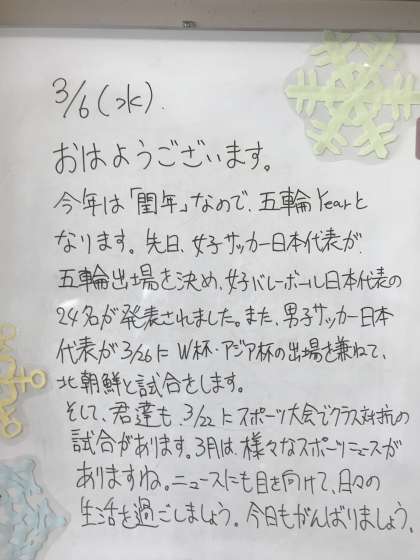 3/6(水).
おはようございます。
今年は「閏年」なので、五輪Yearと
なります。先日、女子サッカー日本代表が
五輪出場を決め、女子バレーボール日本代表の
24名が発表されました。また、男子サッカー日本
代表が3/26にW杯・アジア杯の出場を兼ねて、
北朝鮮と試合をします。
そして、君達も、3/22にスポーツ大会でクラス対抗の
試合があります。3月は、様々なスポーツニュースが
ありますね。ニュースにも目を向けて、日々の
生活を過ごしましょう。今日もがんばりましょう。